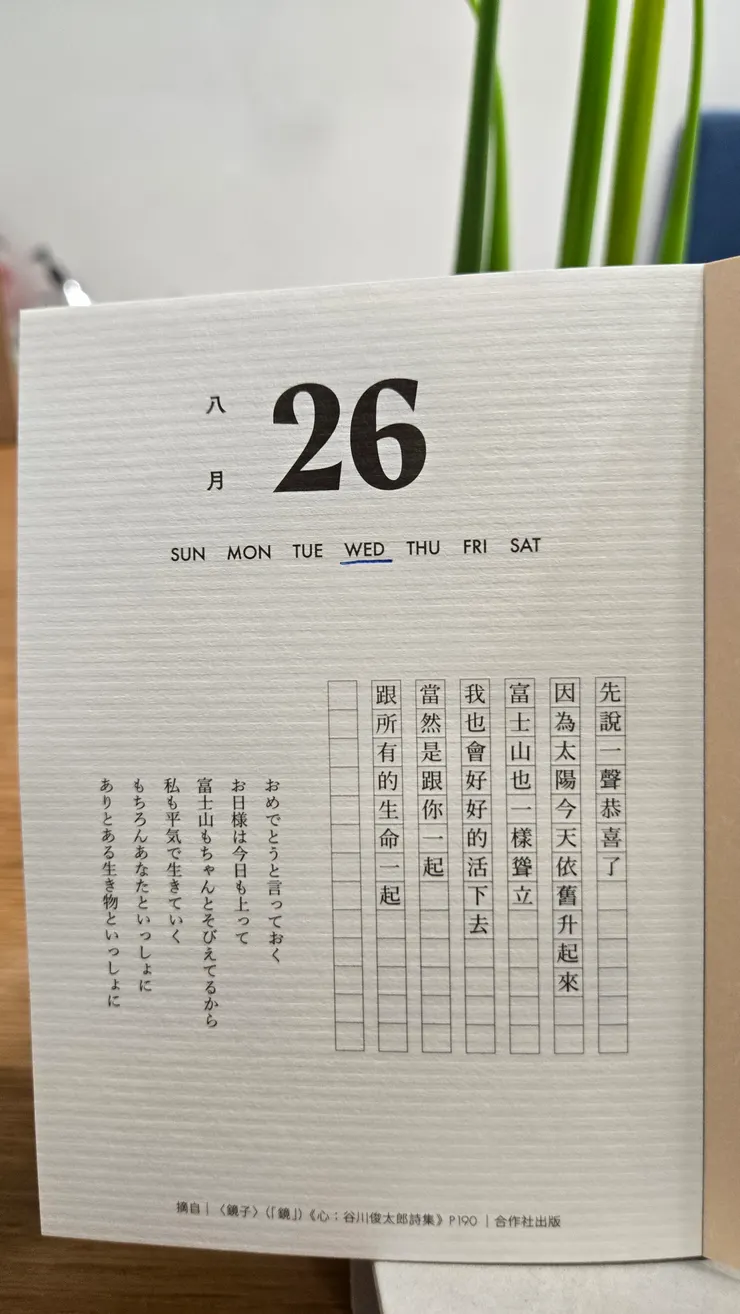 八月
26
SUN MON TUE WED THU FRI SAT
先說一聲恭喜了
因為太陽今天依舊升起來
富士山也一樣聳立
我也會好好的活下去
當然是跟你一起
跟所有的生命一起
おめでとうと言っておく
お日様は今日も上って
富士山もちゃんとそびえてるから
私も平気で生きていく
もちろんあなたといっしょに
ありとある生き物といっしょに
摘自｜〈鏡子〉(「鏡」)《心：谷川俊太郎詩集》P190｜合作社出版